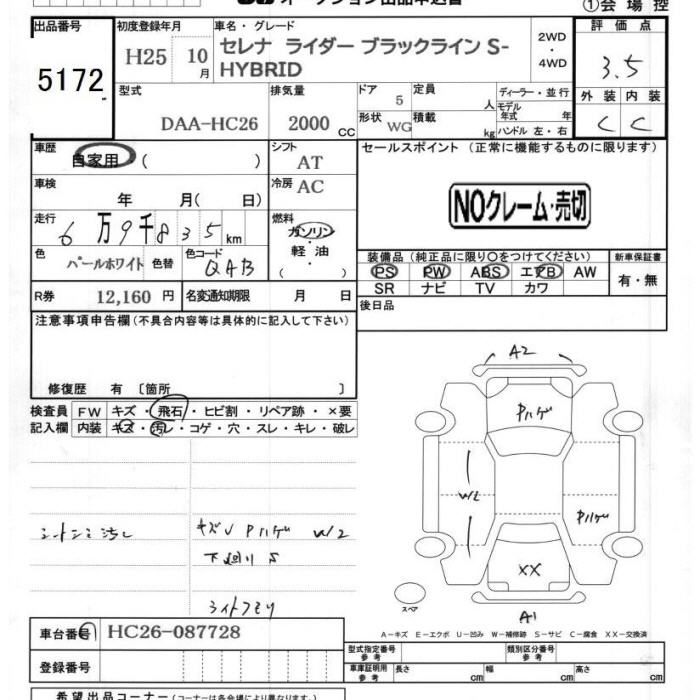 オークション出品申込書
①会場控
出品番号 初度登録年月 車名・グレード 評価点
5172 H25 10月 セレナ ライダー ブラックライン S-HYBRID 2WD・4WD 3.5
型式 排気量 ドア 定員 ディーラー・並行 外装 内装
5 人 モデル年式 年
DAA-HC26 2000CC 形状 WG 積載 kg ハンドル 左・右 C C
車歴 自家用 ( ) シフト AT セールスポイント(正常に機能するものに限ります)
車検 年 月( 日) 冷房 AC
NOクレーム・売切
走行 6万9千835km 燃料 ガソリン
軽油
( )
色 パールホワイト 色替 色コード QAB
装備品(純正品に限り○をつけてください) 新車保証書
PS PW ABS エアB AW 有・無
SR ナビ TV カワ
R券 12,160円 名変通知期限 月 日 後日品
注意事項申告欄(不具合内容等は具体的に記入して下さい)
修復歴 有〔箇所 〕
検査員 FW キズ・飛石・ヒビ割・リペア跡・×要
記入欄 内装 キズ・汚レ・コゲ・穴・スレ・キレ・破レ
シートシミ汚レ
キズU Pハゲ W2
下廻りS
ライトクモリ
A2
Pハゲ
W2
Pハゲ
XX
スペア
A1
A-キズ E-エクボ U-凹み W-補修跡 S-サビ C-腐食 XX-交換済
車台番号 HC26-087728
登録番号
型式指定番号 参考 類別区分番号 参考
車庫証明用 参考 長さ cm 幅 cm 高さ cm
希望出品コーナー(コーナーは各会場により異なります。)